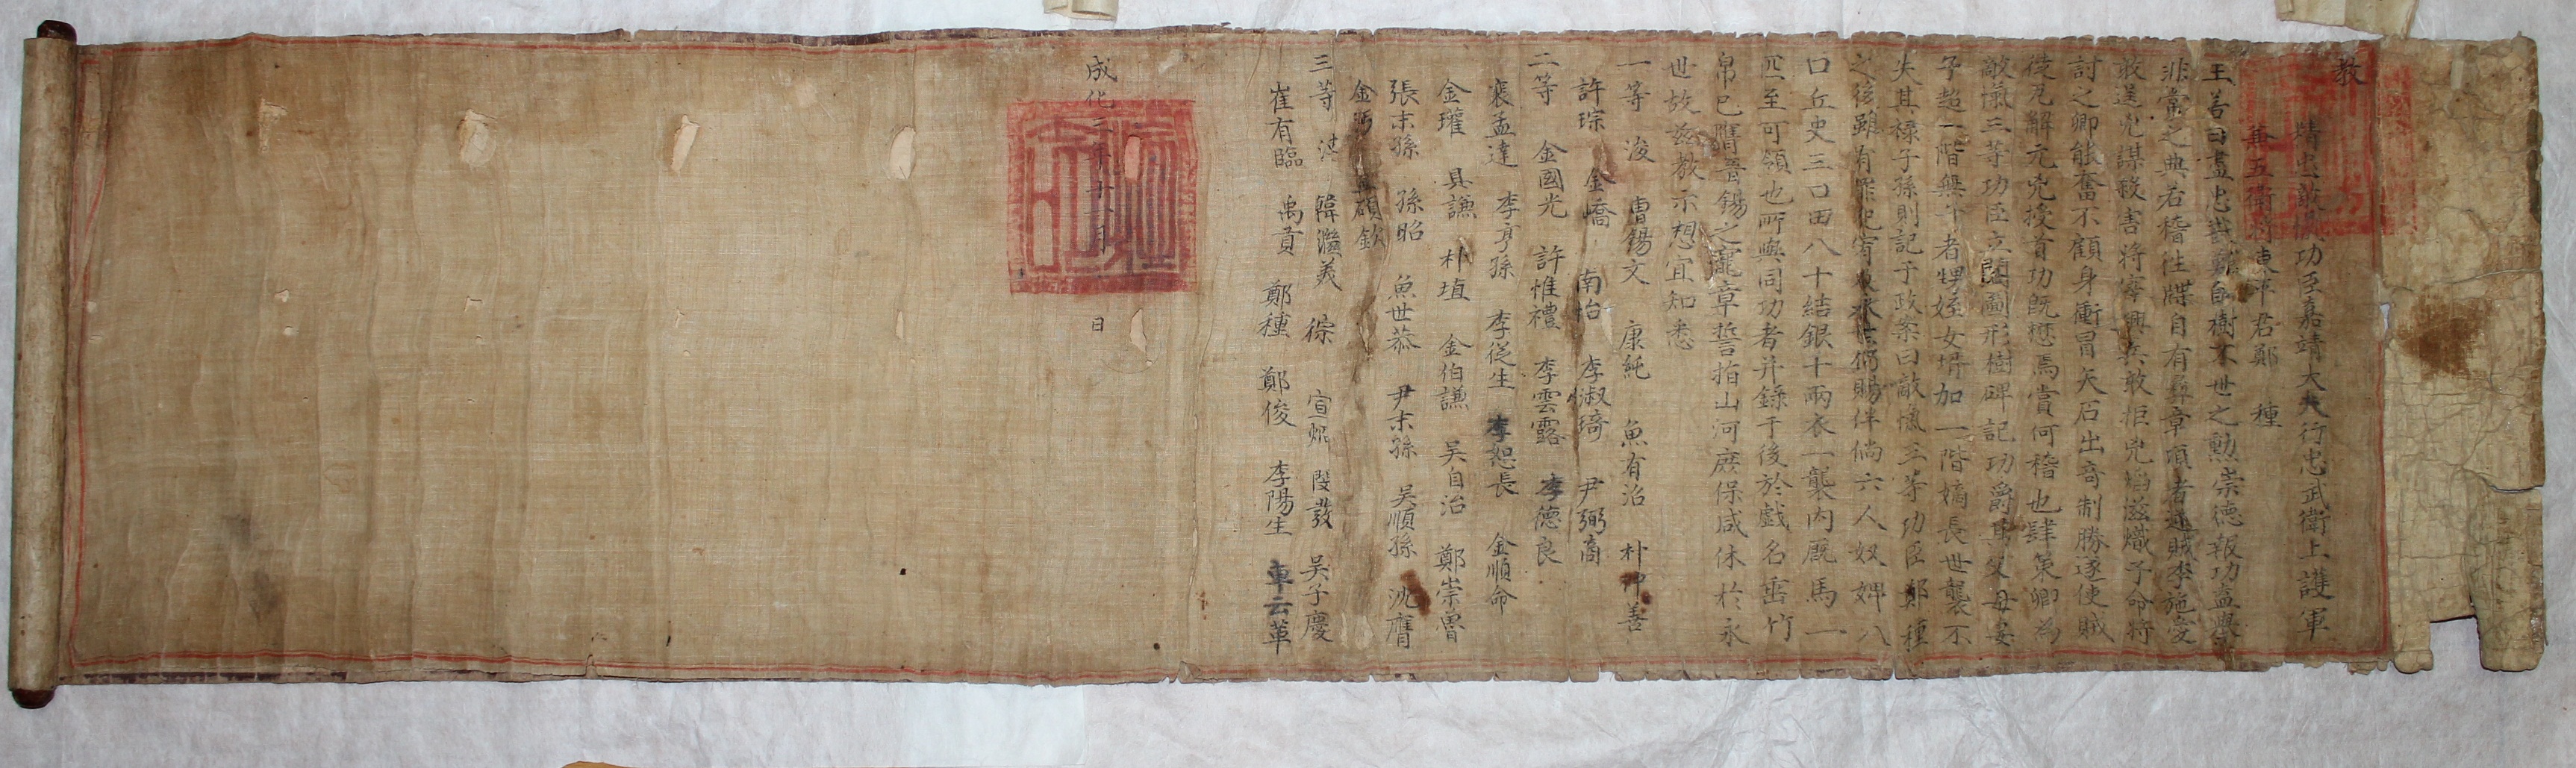 教
精忠敵愾功臣嘉靖大夫行忠武衛上護軍
兼五衛將東平君鄭 種
王若曰盡忠戡難自樹不世之勳崇德報功盍擧
非常之典若稽往牒自有彛章頃者逆賊李施愛
敢逞兇謀戕害將宰興兵敢拒兇焰滋熾予命將
討之卿能奮不顧身衝冒矢石出奇制勝遂使賊
徒瓦解元兇授首功旣懋焉賞何稽也肆策卿為
敵愾三等功臣立閣圖形樹碑記功爵其父母妻
子超一階無子者甥姪女壻加一階嫡長世襲不
失其祿子孫則記于政案曰敵愾三等功臣鄭種
之後雖有罪犯宥及永世仍賜伴倘六人奴婢八
口丘史三口田八十結銀十兩衣一襲內廐馬一
匹至可領也所與同功者幷錄于後於戲名垂竹
帛已膺晉錫之寵章誓指山河庶保咸休於永
世故玆教示想宜知悉
一等 浚 曺錫文 康純 魚有沼 朴仲善
許琮 金嶠 南怡 李淑琦 尹弼商
二等 金國光 許惟禮 李雲露 李德良
裵孟達 李亨孫 李從生 李恕長 金順命
金瓘 具謙 朴埴 金伯謙 吳自治 鄭崇魯
張末孫 孫昭 魚世恭 尹末孫 吳順孫 沈膺
金沔 孟碩欽
三等 溥 韓繼美 徖 宣炯 閔發 吳子慶
崔有臨 禹貢 鄭種 鄭俊 李陽生 車云革
成化三年十一月 日